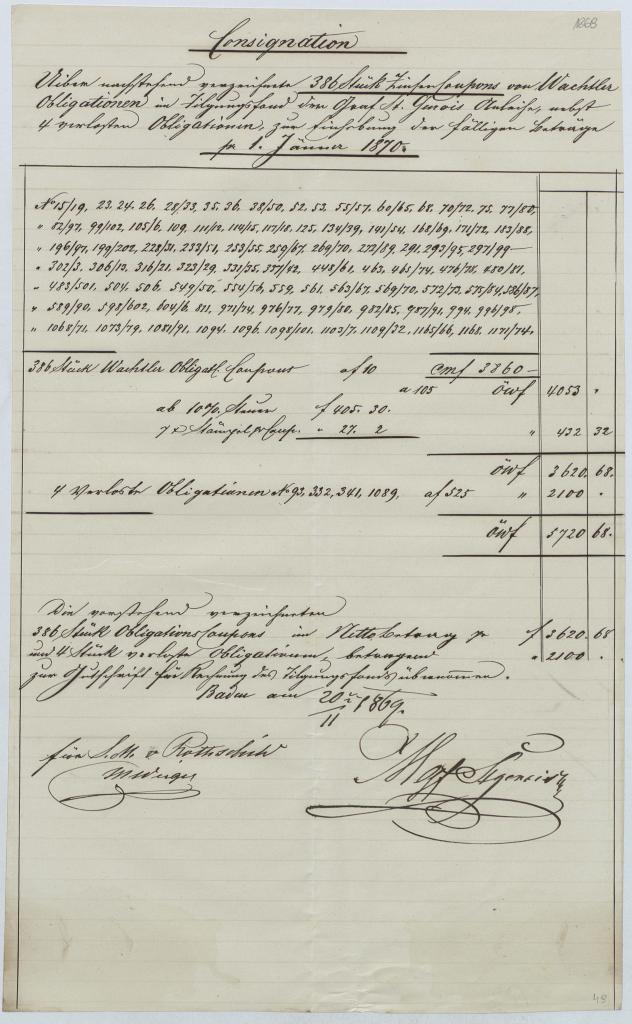 1268
Consignation
Über nachstehend verzeichnete 386 Stück Zinsen Coupons von Wachtler
Obligationen im Tilgungsfond der Graf St. Genois Anleihe, nebst
4 verlosten Obligationen, zur Einhebung der fälligen Beträge
pr 1. Jänner 1870.
No 15/19, 23. 24. 26. 28/33, 35. 36. 38/50, 52. 53. 55/57. 60/65. 68. 70/72. 75. 77/80,
" 82/97, 99/102, 105/6, 109. 111/12, 114/15, 117/18. 125. 134/39, 141/54, 168/69, 171/72, 183/88,
" 196/97, 199/202, 228/31, 233/51, 253/55, 259/67, 269/70, 272/89, 291, 293/95, 297/99
" 302/3, 306/13, 316/21, 323/29, 331/35, 337/42, 448/61, 463, 465/74, 476/78, 480/81,
" 483/501, 504, 506, 549/50, 554/56, 559, 561, 563/67, 569/70, 572/73, 575/84, 586/87,
" 589/90, 598/602, 604/6, 811, 971/74, 976/77, 979/80, 982/85, 987/91, 994, 996/98.
" 1068/71, 1073/79, 1081/91, 1094. 1096. 1098/101. 1103/7, 1109/32, 1165/66, 1168, 1171/74.
386 Stück Wachtler Obligat. Coupons a f 10 cmf 3860 –
a 105 öwf 4053 "
ab 10% Steuer f 405. 30.
7 x Stämpel pr Coup. " 27. 2 " 432 32
öwf 3620. 68.
4 Verloste Obligationen No 93, 332, 341, 1089, a f 525 " 2100 "
öwf 5720 68.
Die vorstehend verzeichneten
386 Stück Obligations Coupons im Nettobetrag pr f 3620. 68
und 4 Stück verloste Obligationen, betragend " 2100 .
zur Gutschrift für Rechnung des Tilgungsfonds übernommen.
Baden am 20/11 1869.
für S. M. v Rothschild
49